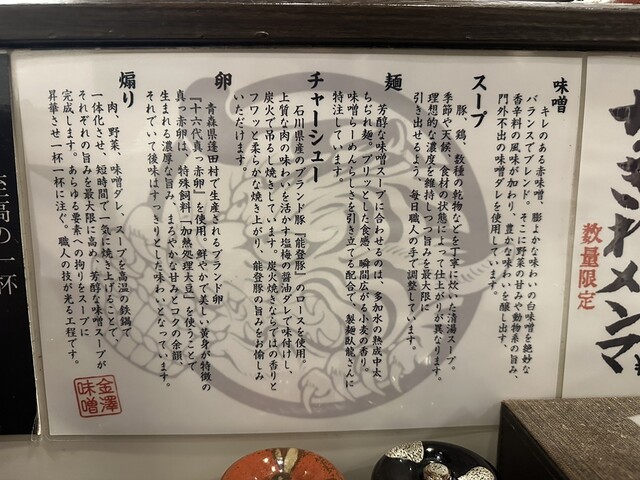 さきイカメンマ
数量限定
味噌
キレのある赤味噌、膨よかな味わいの白味噌を絶妙な
バランスでブレンド。そこに野菜の甘みや動物系の旨み、
香辛料の風味が加わり、豊かな味わいを醸し出す、
門外不出の味噌ダレを使用しています。
スープ
豚、鶏、数種の乾物などを丁寧に炊いた清湯スープ。
季節や天候、食材の状態によって仕上がりが異なります。
理想的な濃度を維持しつつ旨みを最大限に
引き出せるよう、毎日職人の手で調整しています。
麺
芳醇な味噌スープに合わせるのは、多加水の熟成中太
ちぢれ麺。プリッとした食感、瞬間広がる小麦の香り。
味噌らーめんらしさを引き立てる配合で、製麺臥龍さんに
特注しています。
チャーシュー
石川県産のブランド豚『能登豚』のロースを使用。
上質な肉の味わいを活かす塩梅の醤油ダレで味付けし、
炭火で吊るし焼きしています。炭火焼きならではの香りと
フワッと柔らかな焼き上がり、能登豚の旨みをお愉しみ
いただけます。
卵
青森県蓬田村で生産されるブランド卵
「十六代真っ赤卵」を使用。鮮やかで美しい黄身が特徴の
真っ赤卵は、特殊飼料「加熱処理大豆」を使うことで
生まれる濃厚な旨み、まろやかな甘みとコクの余韻、
それでいて後味はすっきりとした味わいとなっています。
煽り
肉、野菜、味噌ダレ、スープを高温の鉄鍋で
一体化させ、短時間で一気に焼き上げることで、
それぞれの旨みを最大限に高め、芳醇な味噌スープが
完成します。あらゆる要素への拘りをスープに
昇華させ一杯一杯に注ぐ。職人の技が光る工程です。
金澤
味噌
至高の一杯